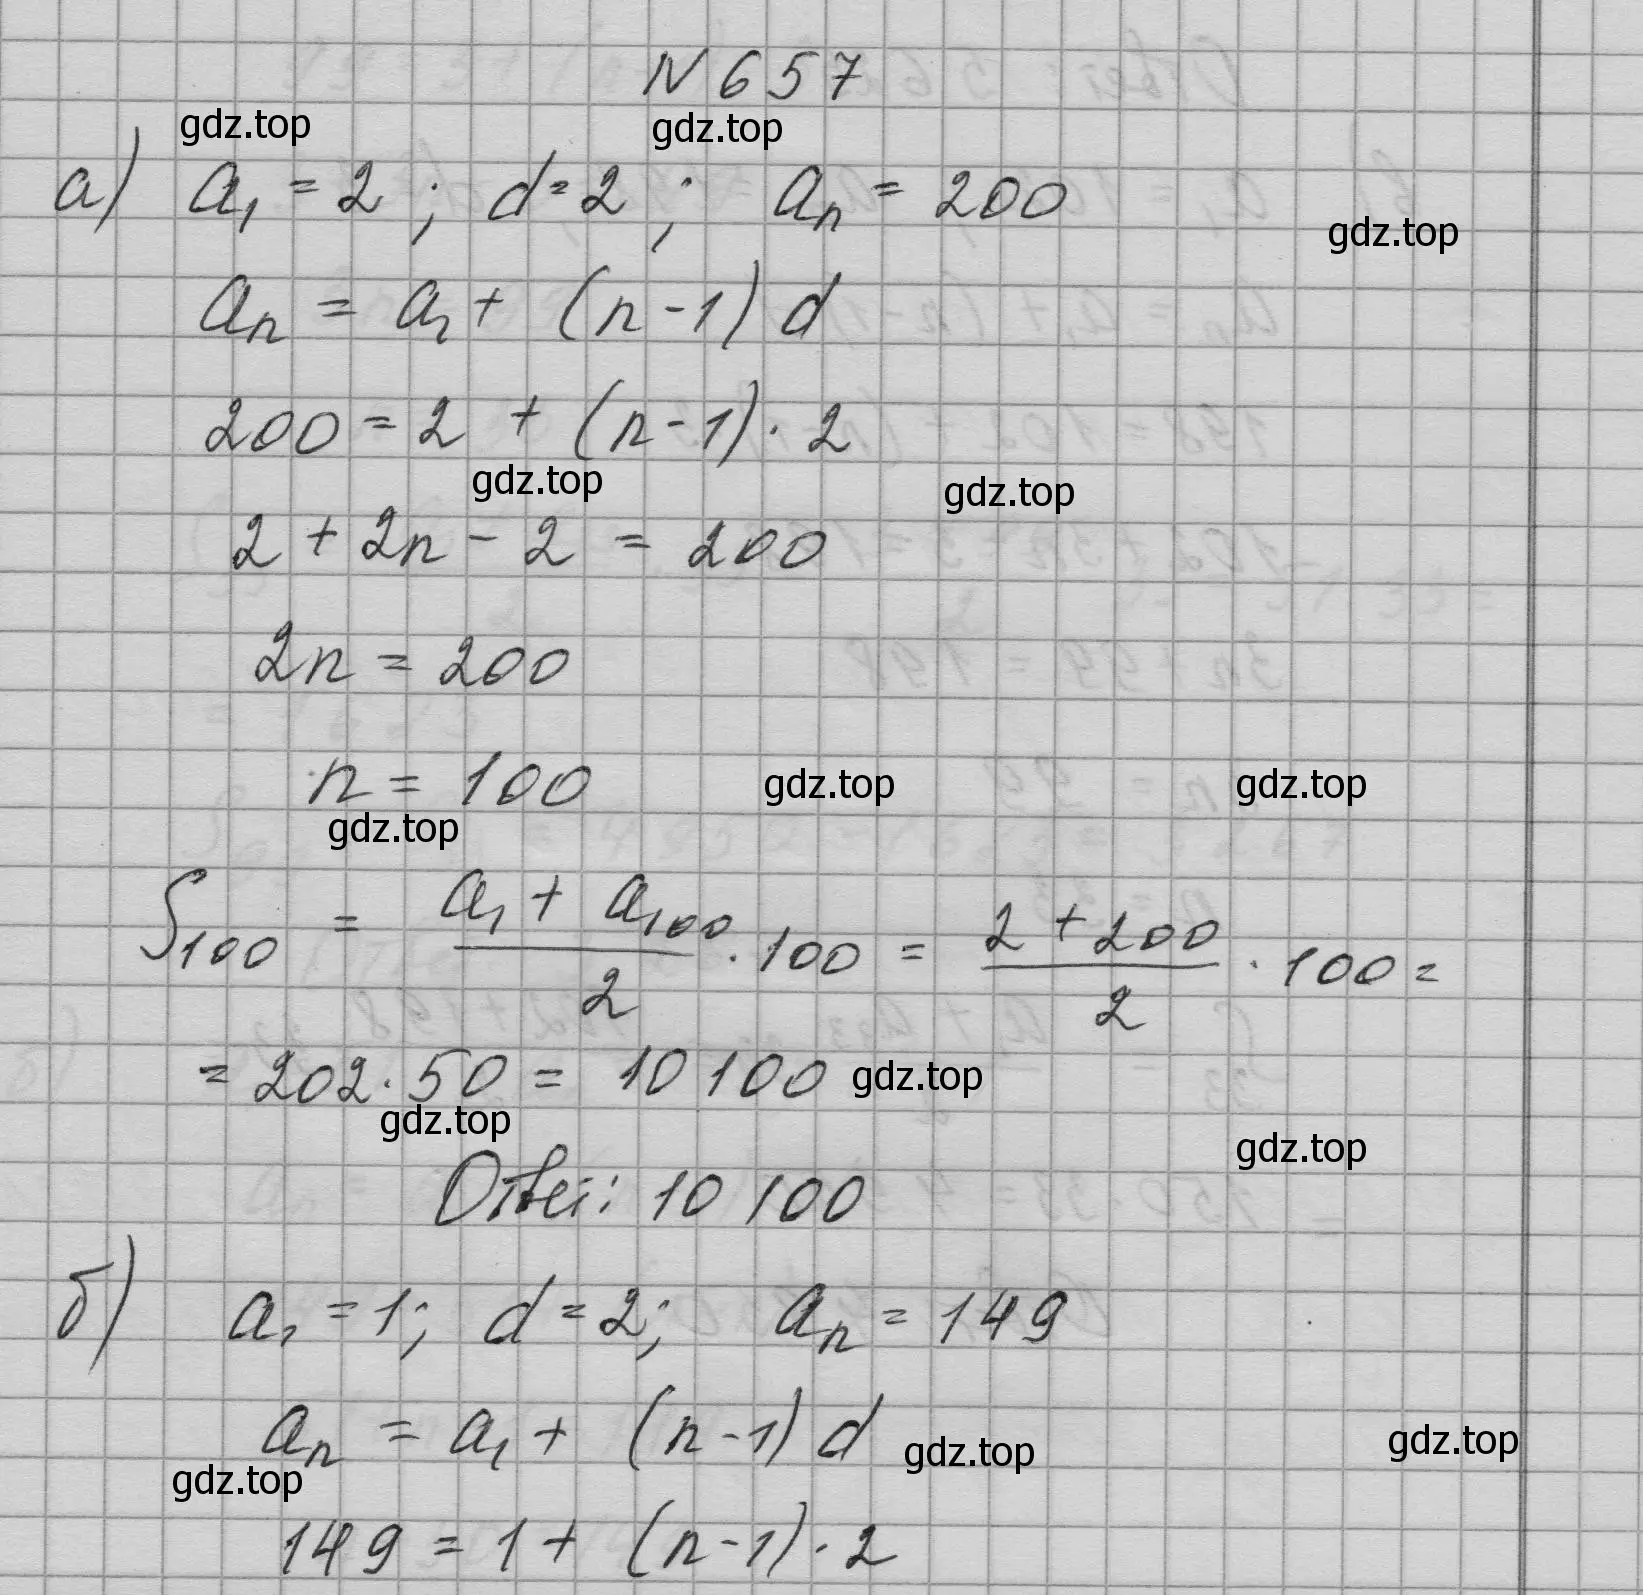 N 657
gdz.top gdz.top
а) a₁ = 2 ; d = 2 ; aₙ = 200
gdz.top
aₙ = a₁ + (n - 1) d
200 = 2 + (n - 1) · 2
gdz.top gdz.top
2 + 2n - 2 = 200
2n = 200
n = 100 gdz.top gdz.top
gdz.top
S₁₀₀ = (a₁ + a₁₀₀)/2 · 100 = (2 + 200)/2 · 100 =
= 202 · 50 = 10 100 gdz.top
gdz.top gdz.top
Ответ: 10 100
б) a₁ = 1; d = 2; aₙ = 149
aₙ = a₁ + (n - 1) d gdz.top gdz.top
gdz.top
149 = 1 + (n - 1) · 2